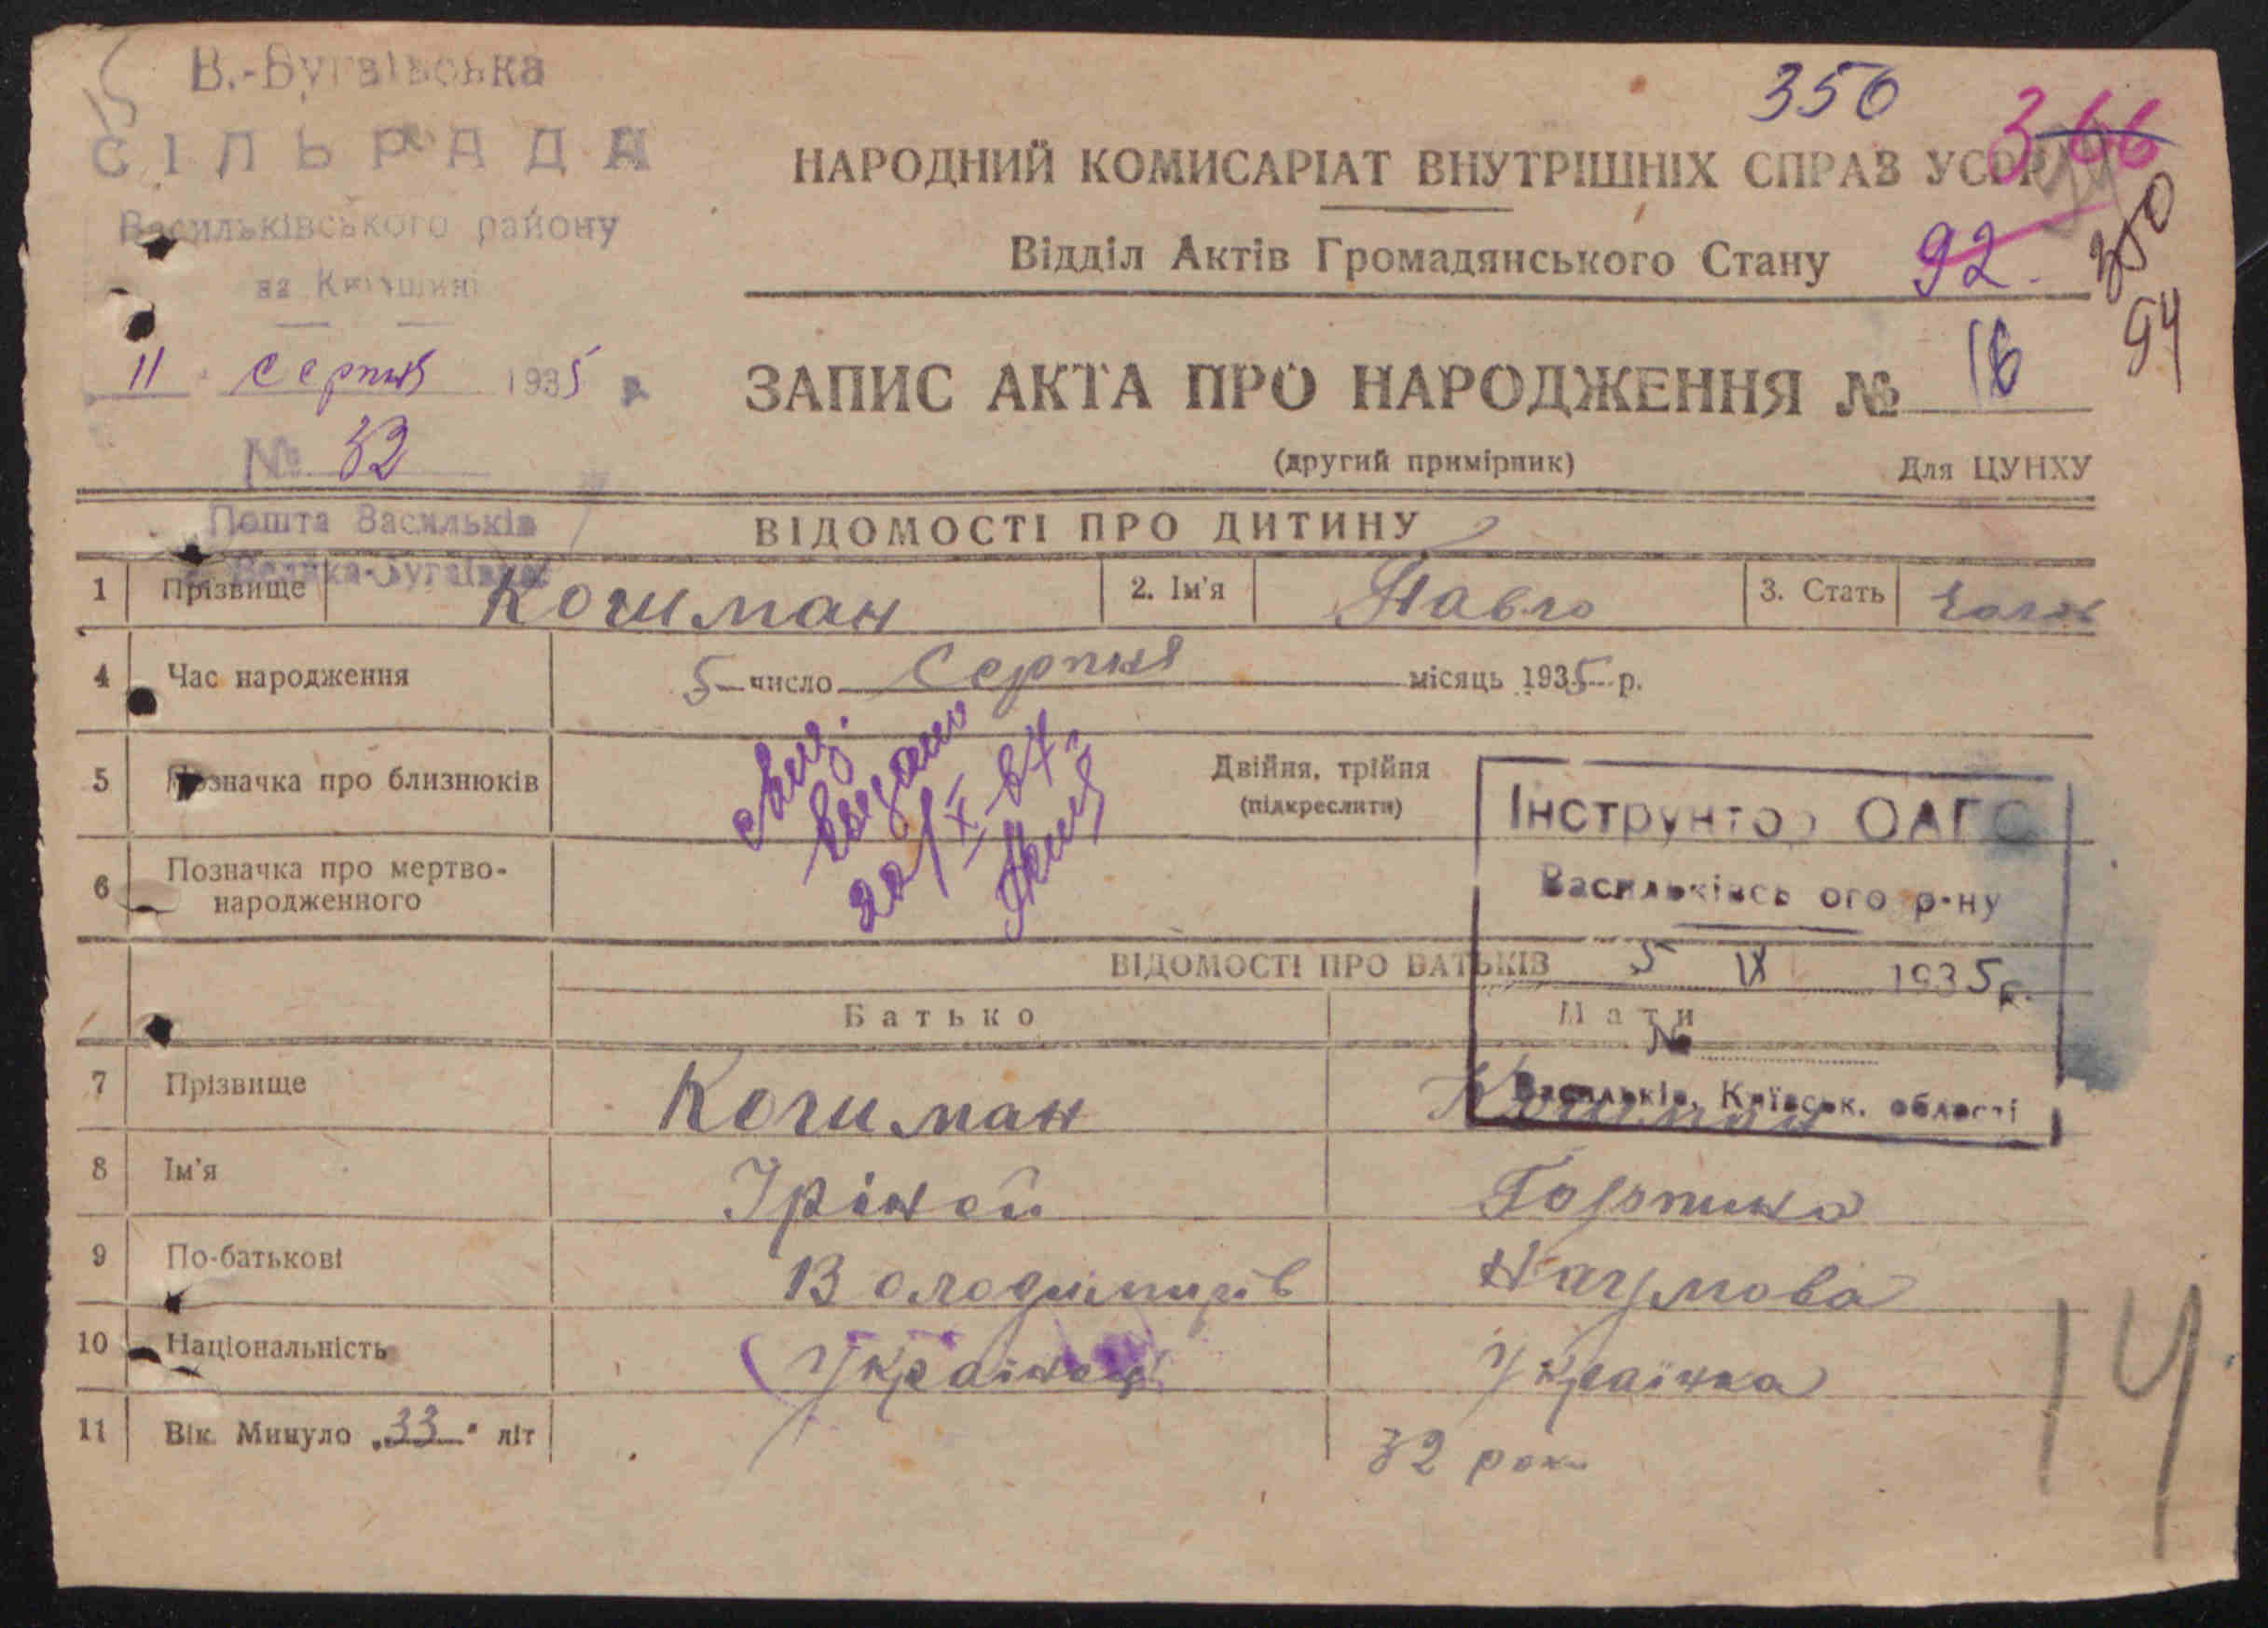 В.-Бугаївська
СІЛЬРАДА
Васильківського району
на Київщині
11 серпня 1935 р.
№ 32
Пошта Васильків
Велика-Бугаївка
350
366
НАРОДНИЙ КОМИСАРІАТ ВНУТРІШНІХ СПРАВ УСРР
Відділ Актів Громадянського Стану
92.
350
94
ЗАПИС АКТА ПРО НАРОДЖЕННЯ № 16
(другий примірник)
Для ЦУНХУ
ВІДОМОСТІ ПРО ДИТИНУ
1 Прізвище Кочиман 2. Ім'я Павло 3. Стать Чолов
4 Час народження 5 число Серпня місяць 1935 р.
5 Позначка про близнюків Двійня, трійня
(підкреслити)
6 Позначка про мертво-
народженного
свид.
выдано
20/X-67.
Інструктор ОАГС
Васильківського р-ну
5 IX 1935 р.
№
Васильків, Київськ. області
ВІДОМОСТІ ПРО БАТЬКІВ
Батько Мати
7 Прізвище Кочиман Кочиман
8 Ім'я Іріней Горпина
9 По-батькові Володимирів Наумова
10 Національність Українець Українка
11 Вік. Минуло „33" літ 32 роки
14